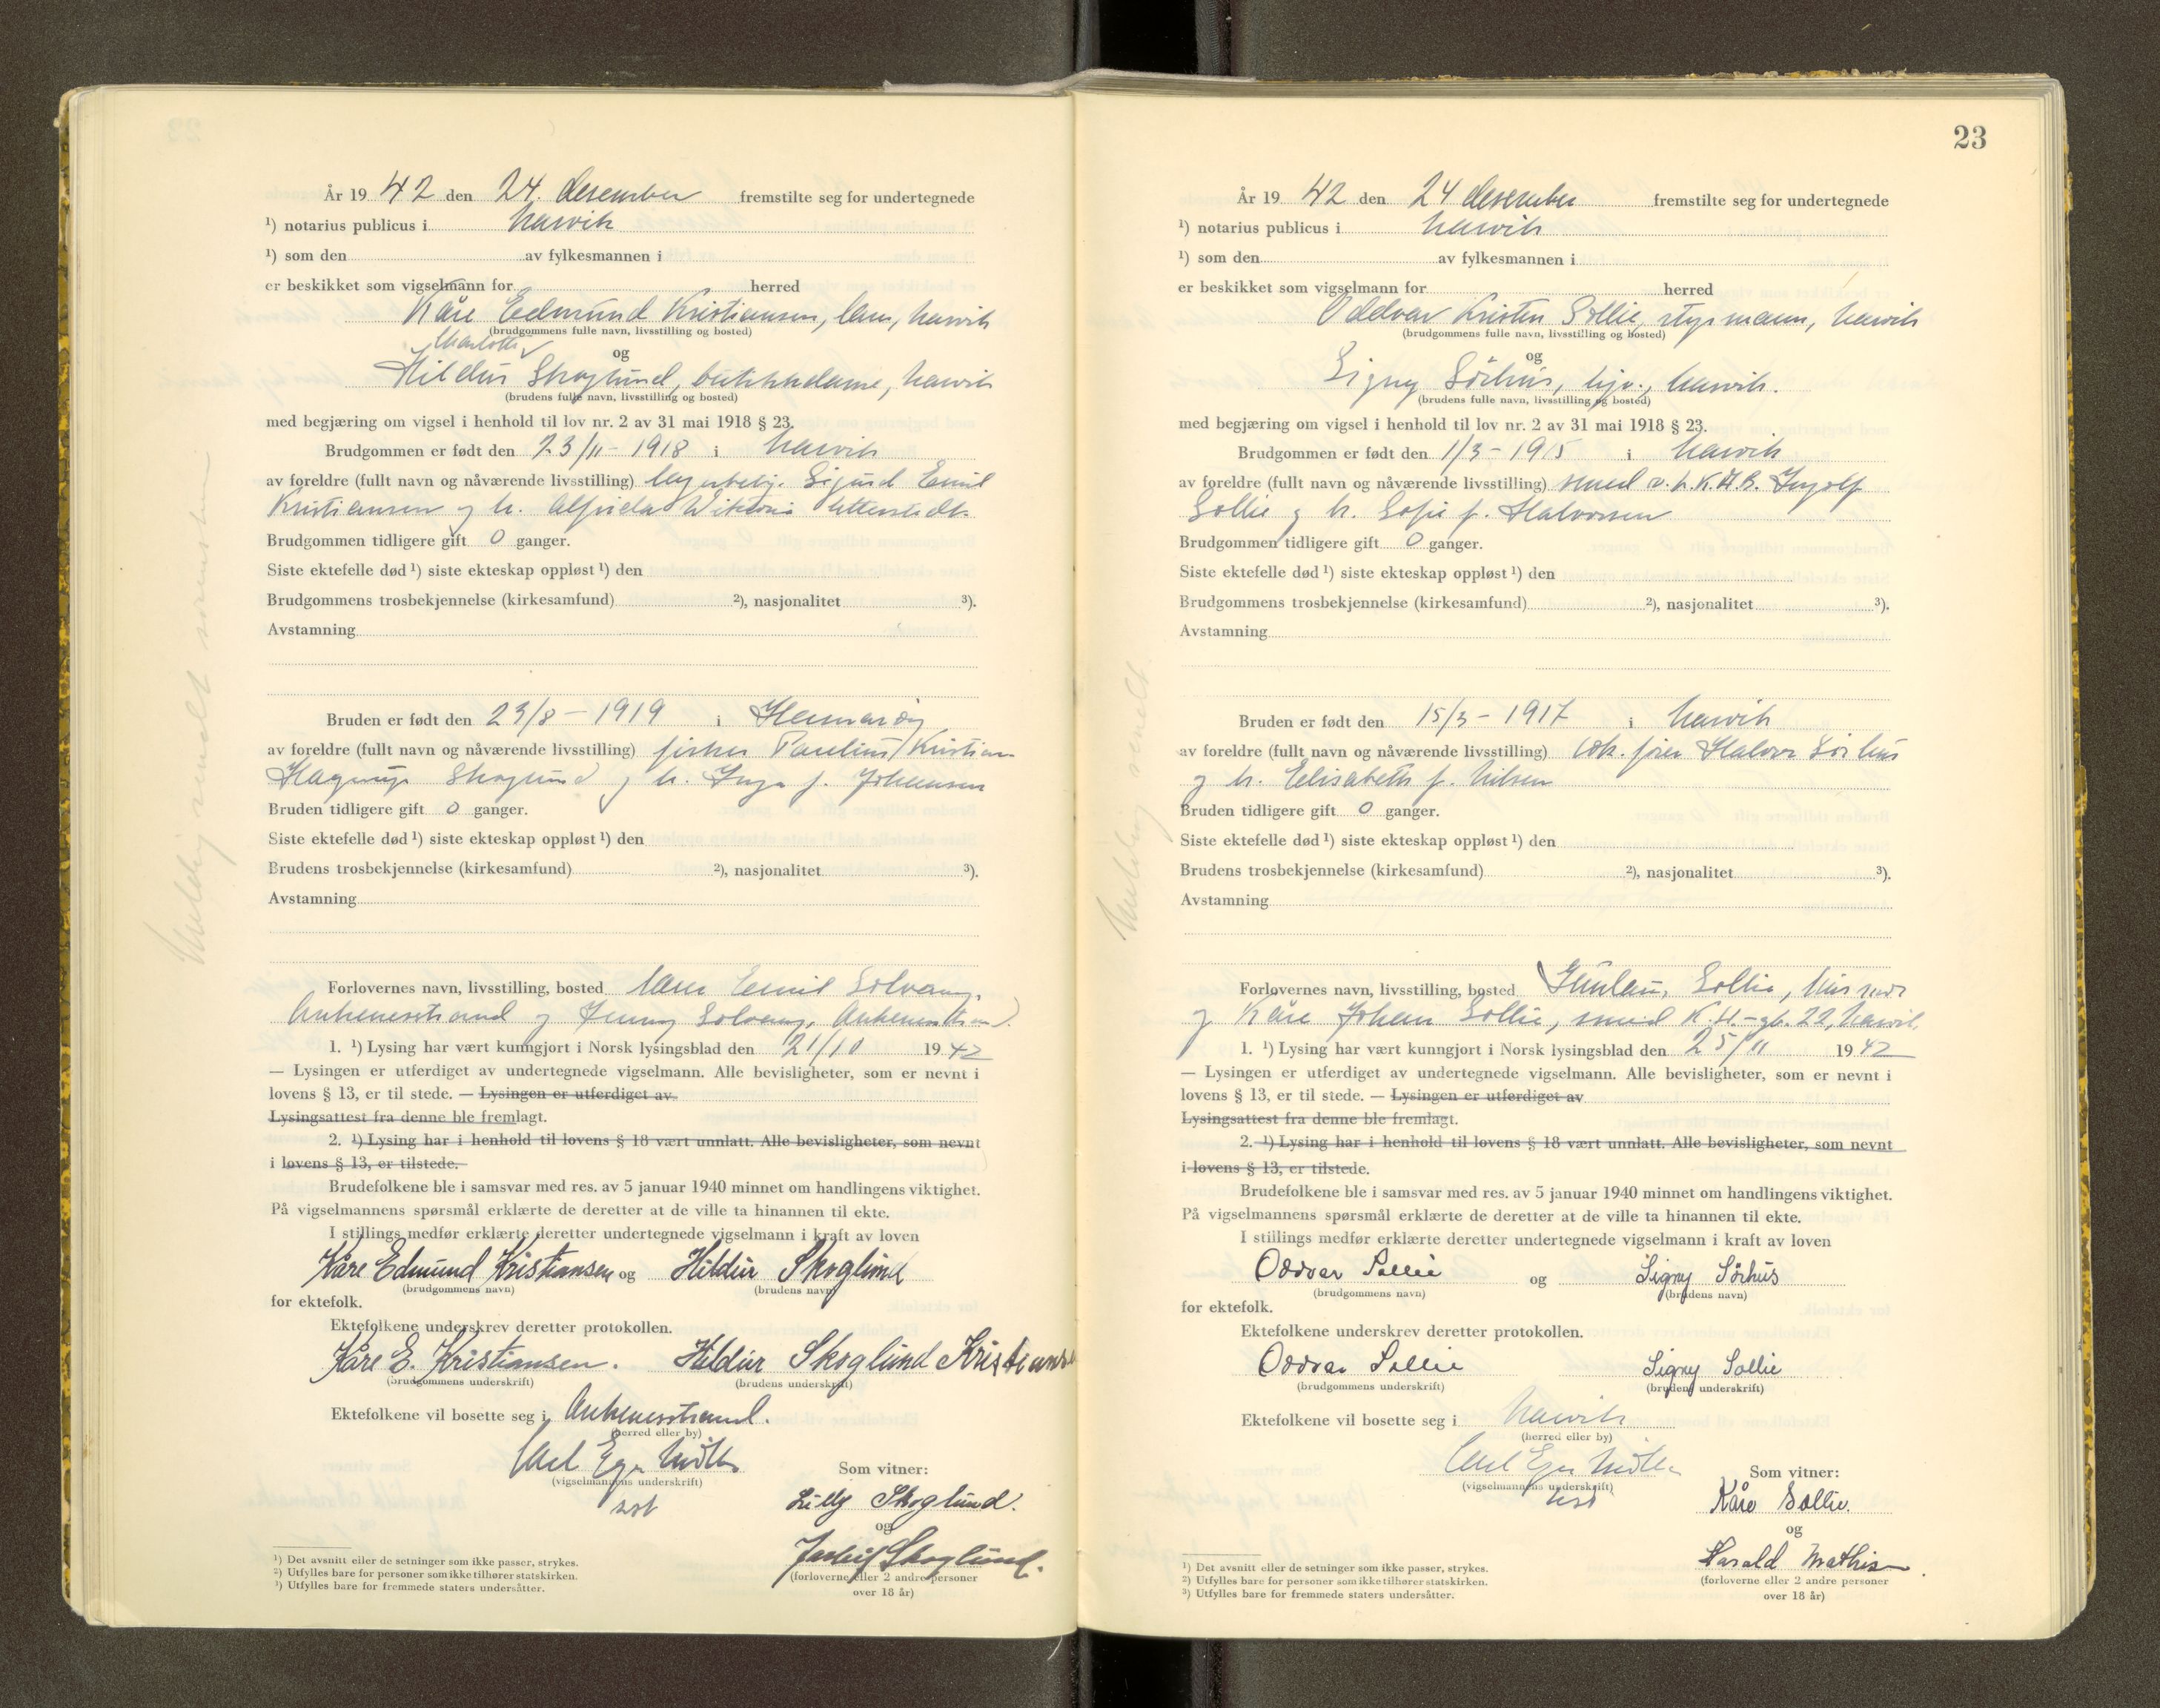 År 19 42 den 24. desember fremstilte seg for undertegnede
¹) notarius publicus i Narvik
¹) som den av fylkesmannen i
er beskikket som vigselmann for herred
Kåre Edmund Kristiansen, Narvik
(brudgommens fulle navn, livsstilling og bosted)
Charlotte
og
Hildur Skoglund, butikkdame, Narvik
(brudens fulle navn, livsstilling og bosted)
med begjæring om vigsel i henhold til lov nr. 2 av 31 mai 1918 § 23.
Brudgommen er født den 23/11 - 1918 i Narvik
av foreldre (fullt navn og nåværende livsstilling) Sigurd Emil
Kristiansen og h. Alfrida
Brudgommen tidligere gift 0 ganger.
Siste ektefelle død ¹) siste ekteskap oppløst ¹) den
Brudgommens trosbekjennelse (kirkesamfund) ²), nasjonalitet ³).
Avstamning
Bruden er født den 23/8 - 1919 i Hamarøy
av foreldre (fullt navn og nåværende livsstilling) fisker Paulius Kristian
Skoglund og h. Inga f. Johansen
Bruden tidligere gift 0 ganger.
Siste ektefelle død ¹) siste ekteskap oppløst ¹) den
Brudens trosbekjennelse (kirkesamfund) ²), nasjonalitet ³).
Avstamning
Forlovernes navn, livsstilling, bosted Emil Solvang,
Ankenesstrand og Jenny Solvang, Ankenesstrand.
1. ¹) Lysing har vært kunngjort i Norsk lysingsblad den 21/10 19 42
— Lysingen er utferdiget av undertegnede vigselmann. Alle bevisligheter, som er nevnt i
lovens § 13, er til stede. — Lysingen er utferdiget av
Lysingsattest fra denne ble fremlagt.
2. ¹) Lysing har i henhold til lovens § 18 vært unnlatt. Alle bevisligheter, som nevnt
i lovens § 13, er tilstede.
Brudefolkene ble i samsvar med res. av 5 januar 1940 minnet om handlingens viktighet.
På vigselmannens spørsmål erklærte de deretter at de ville ta hinannen til ekte.
I stillings medfør erklærte deretter undertegnede vigselmann i kraft av loven
Kåre Edmund Kristiansen og Hildur Skoglund
(brudgommens navn) (brudens navn)
for ektefolk.
Ektefolkene underskrev deretter protokollen.
Kåre E. Kristiansen. Hildur Skoglund Kristiansen
(brudgommens underskrift) (brudens underskrift)
Ektefolkene vil bosette seg i Ankenesstrand.
(herred eller by)
(vigselmannens underskrift)
Som vitner:
Lilly Skoglund.
og
Skoglund.
(forloverne eller 2 andre personer
over 18 år)
¹) Det avsnitt eller de setninger som ikke passer, strykes.
²) Utfylles bare for personer som ikke tilhører statskirken.
³) Utfylles bare for fremmede staters undersåtter.
23
År 19 42 den 24 desember fremstilte seg for undertegnede
¹) notarius publicus i Narvik
¹) som den av fylkesmannen i
er beskikket som vigselmann for herred
Oddvar Kristen Sollie, styrmann, Narvik
(brudgommens fulle navn, livsstilling og bosted)
og
Signy Sörhus, hjv., Narvik.
(brudens fulle navn, livsstilling og bosted)
med begjæring om vigsel i henhold til lov nr. 2 av 31 mai 1918 § 23.
Brudgommen er født den 1/3 - 1915 i Narvik
av foreldre (fullt navn og nåværende livsstilling) smed v. L.K.A.B. Ingolf
Sollie og h. Sofie f. Halvorsen
Brudgommen tidligere gift 0 ganger.
Siste ektefelle død ¹) siste ekteskap oppløst ¹) den
Brudgommens trosbekjennelse (kirkesamfund) ²), nasjonalitet ³).
Avstamning
Bruden er født den 15/3 - 1917 i Narvik
av foreldre (fullt navn og nåværende livsstilling) lok. fører Halvor Sörhus
og h. Elisabeth f. Nilsen
Bruden tidligere gift 0 ganger.
Siste ektefelle død ¹) siste ekteskap oppløst ¹) den
Brudens trosbekjennelse (kirkesamfund) ²), nasjonalitet ³).
Avstamning
Forlovernes navn, livsstilling, bosted Sollie, husmor
og Kåre Johan Sollie, smed K.H.-gt. 22, Narvik.
1. ¹) Lysing har vært kunngjort i Norsk lysingsblad den 25/11 19 42
— Lysingen er utferdiget av undertegnede vigselmann. Alle bevisligheter, som er nevnt i
lovens § 13, er til stede. — Lysingen er utferdiget av
Lysingsattest fra denne ble fremlagt.
2. ¹) Lysing har i henhold til lovens § 18 vært unnlatt. Alle bevisligheter, som nevnt
i lovens § 13, er tilstede.
Brudefolkene ble i samsvar med res. av 5 januar 1940 minnet om handlingens viktighet.
På vigselmannens spørsmål erklærte de deretter at de ville ta hinannen til ekte.
I stillings medfør erklærte deretter undertegnede vigselmann i kraft av loven
Oddvar Sollie og Signy Sörhus
(brudgommens navn) (brudens navn)
for ektefolk.
Ektefolkene underskrev deretter protokollen.
Oddvar Sollie Signy Sollie
(brudgommens underskrift) (brudens underskrift)
Ektefolkene vil bosette seg i Narvik
(herred eller by)
(vigselmannens underskrift)
Som vitner:
Kåre Sollie.
og
Harald Mathis
(forloverne eller 2 andre personer
over 18 år)
¹) Det avsnitt eller de setninger som ikke passer, strykes.
²) Utfylles bare for personer som ikke tilhører statskirken.
³) Utfylles bare for fremmede staters undersåtter.